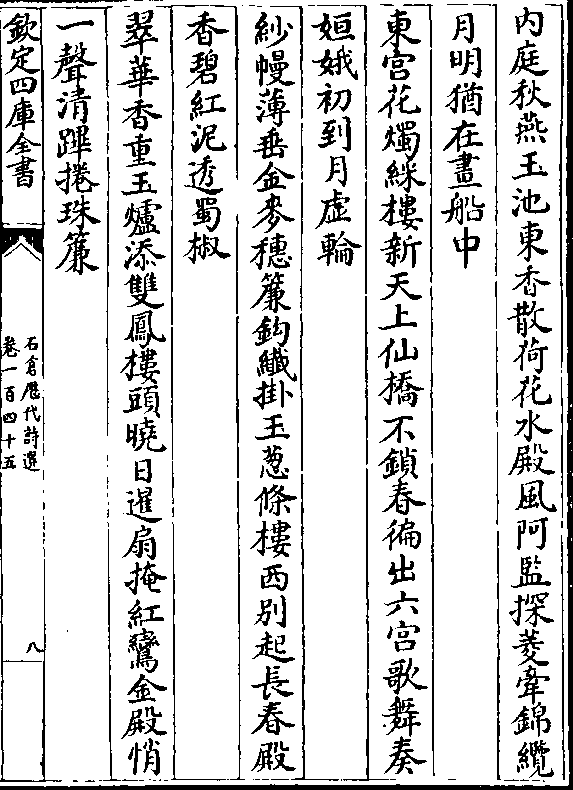 內庭秋燕玉池東香散荷花水殿風阿監探菱牽錦纜
月明猶在畫船中
東宮花燭綵樓新天上仙橋不鎖春徧出六宮歌舞奏
姮娥初到月虛輪
紗幔薄垂金麥穗簾鈎纖掛玉蔥條樓西別起長春殿
香碧紅泥透蜀椒
翠華香重玉爐添雙鳳樓頭曉日暹扇掩紅鸞金殿悄
一聲清蹕捲珠簾
欽定四庫全書
石倉歷代詩選
卷一百四十五
八